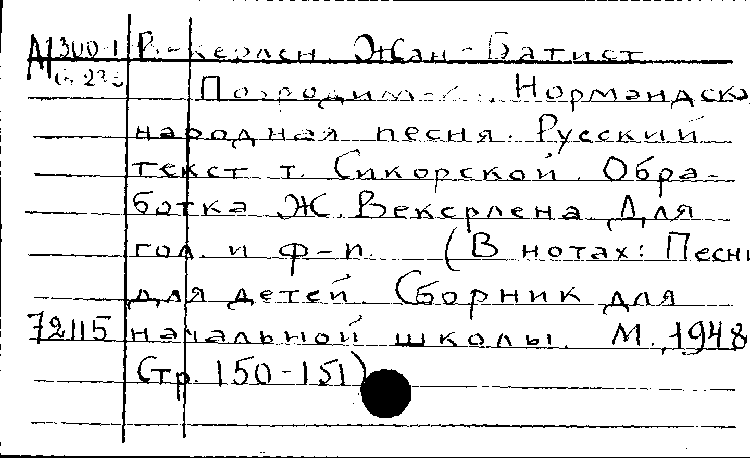 М 300-1 Векерлен, Жан-Батист
Нормандская
народная песня. Русский
текст Т. Сикорской. Обра-
ботка Ж. Векерлена. Для
гол. и ф-п. (В нотах: Песни
для детей. Сборник для
72115 начальной школы. М., 1948
Стр. 150-151)